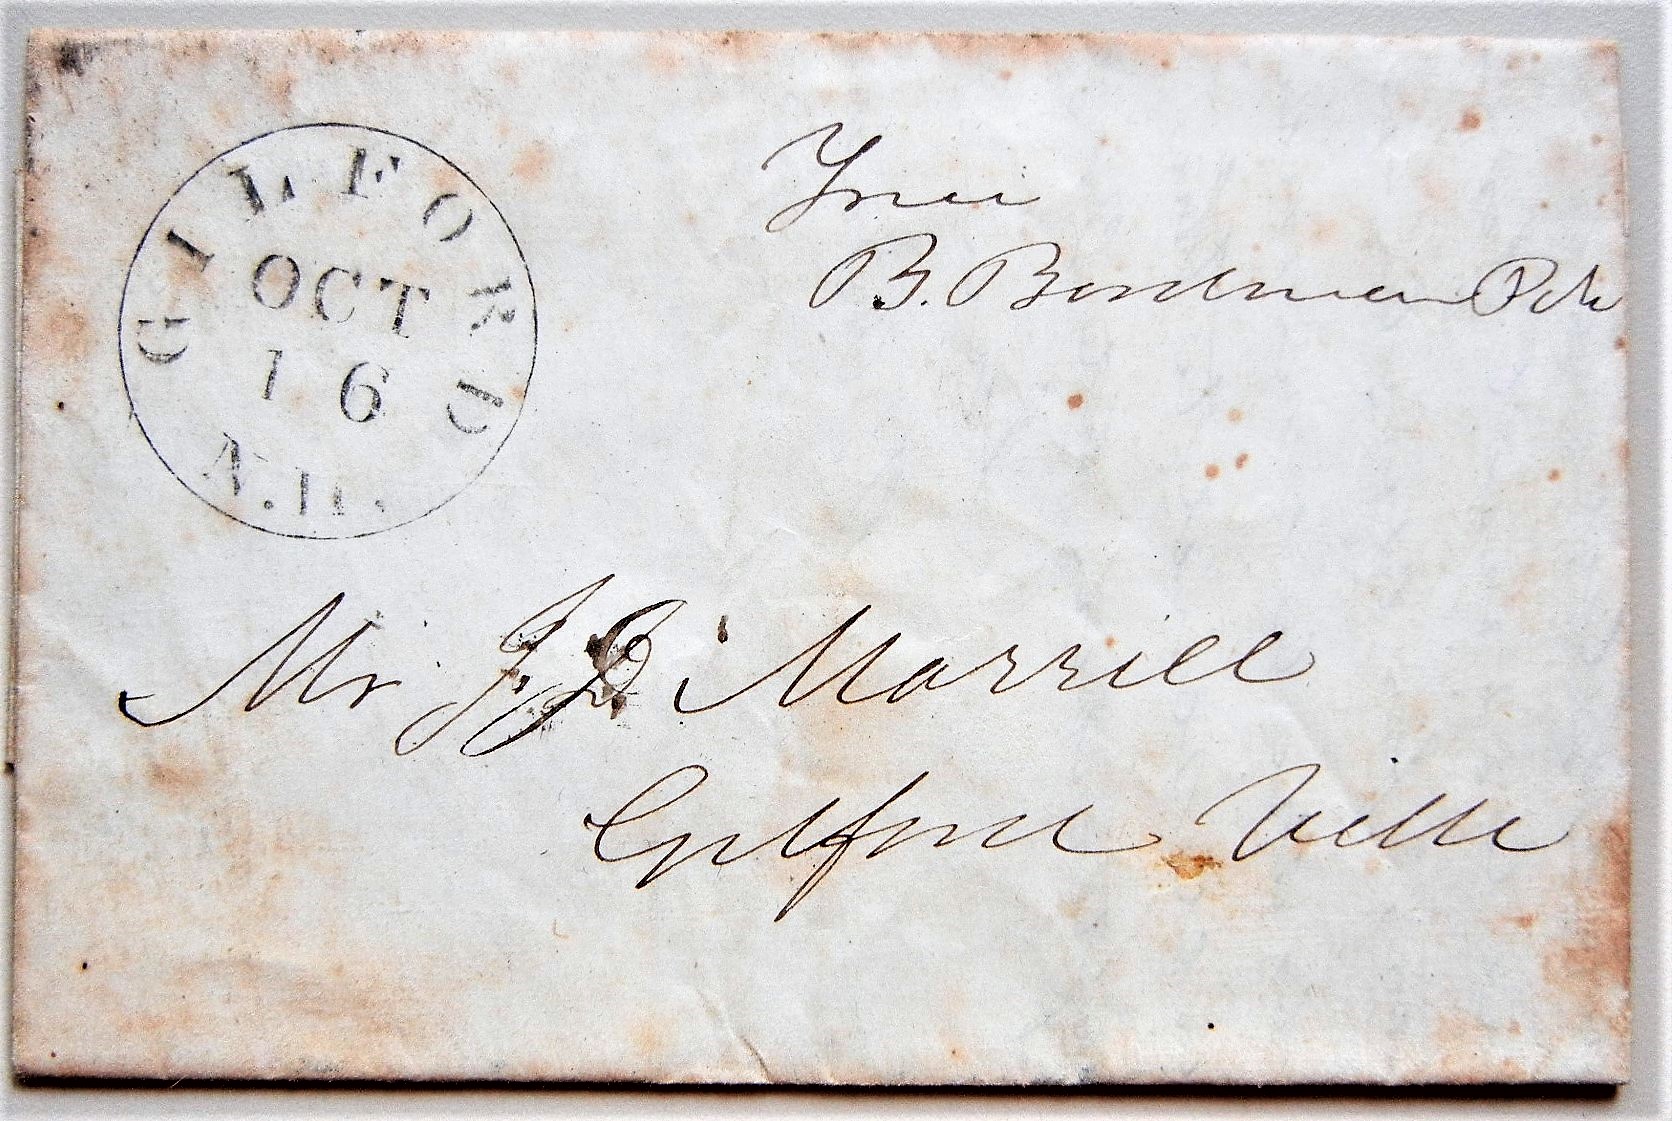 GILFORD
OCT
16
N.H.
Free
B. Bordman PM
Mr J. D. Morrill
Gilford Ville